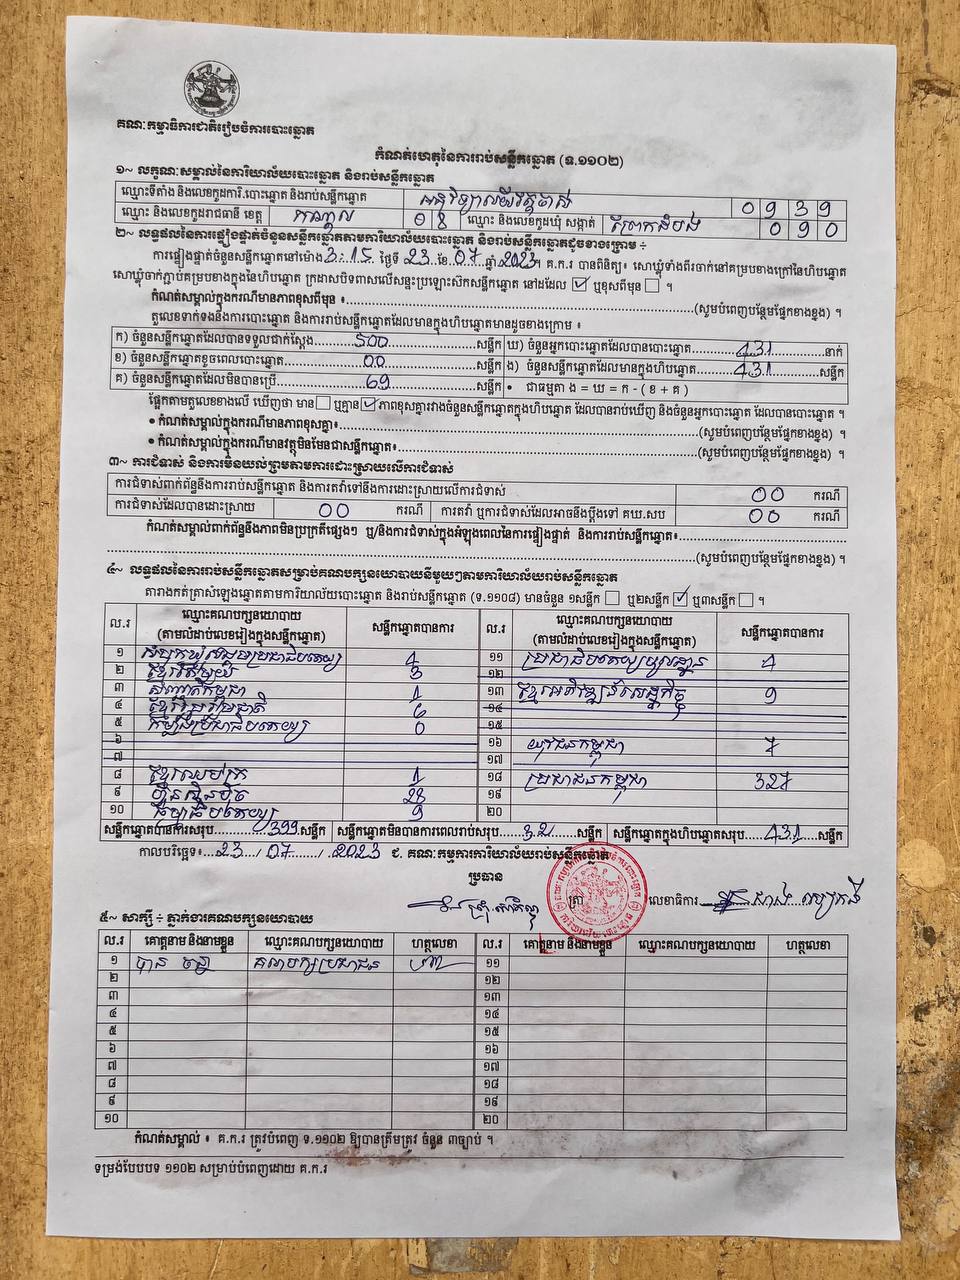 គណៈកម្មាធិការជាតិរៀបចំការបោះឆ្នោត
កំណត់ហេតុនៃការរាប់សន្លឹកឆ្នោត (ទ.១១០២)
១~ លក្ខណៈសម្គាល់នៃការិយាល័យបោះឆ្នោត និងរាប់សន្លឹកឆ្នោត
ឈ្មោះទីតាំង និងលេខកូដការិ.បោះឆ្នោត និងរាប់សន្លឹកឆ្នោត អនុវិទ្យាល័យវត្តចាស់ 0 9 3 9
ឈ្មោះ និងលេខកូដរាជធានី ខេត្ត កណ្តាល 0 8 ឈ្មោះ និងលេខកូដឃុំ សង្កាត់ ព្រែកដំបង 0 9 0
២~ លទ្ធផលនៃការផ្ទៀងផ្ទាត់ចំនួនសន្លឹកឆ្នោតតាមការិយាល័យបោះឆ្នោត និងរាប់សន្លឹកឆ្នោតដូចខាងក្រោម ៖
ការផ្ទៀងផ្ទាត់ចំនួនសន្លឹកឆ្នោតនៅម៉ោង 3:15 ថ្ងៃទី 23 ខែ 07 ឆ្នាំ 2023។ គ.ក.រ បានពិនិត្យ៖ សោឃ្លុំទាំងពីរចាក់នៅគម្របខាងក្រៅនៃហិបឆ្នោត
សោឃ្លុំចាក់ភ្ជាប់គម្របខាងក្នុងនៃហិបឆ្នោត ក្រដាសបិទពាសលើសន្ទះប្រឡោះសិកសន្លឹកឆ្នោត នៅដដែល ☑ ឬខុសពីមុន ☐ ។
កំណត់សម្គាល់ក្នុងករណីមានភាពខុសពីមុន ៖ (សូមបំពេញបន្ថែមផ្នែកខាងខ្នង) ។
តួលេខទាក់ទងនឹងការបោះឆ្នោត និងការរាប់សន្លឹកឆ្នោតដែលមានក្នុងហិបឆ្នោតមានដូចខាងក្រោម ៖
ក) ចំនួនសន្លឹកឆ្នោតដែលបានទទួលជាក់ស្តែង 500 សន្លឹក ឃ) ចំនួនអ្នកបោះឆ្នោតដែលបានបោះឆ្នោត 431 នាក់
ខ) ចំនួនសន្លឹកឆ្នោតខូចពេលបោះឆ្នោត 00 សន្លឹក ង) ចំនួនសន្លឹកឆ្នោតដែលមានក្នុងហិប 431 សន្លឹក
គ) ចំនួនសន្លឹកឆ្នោតដែលមិនបានប្រើ 69 សន្លឹក • ជាធម្មតា ង = ឃ = ក - ( ខ + គ )
ផ្អែកតាមតួលេខខាងលើ ឃើញថា មាន ☐ ឬគ្មាន ☑ ភាពខុសគ្នារវាងចំនួនសន្លឹកឆ្នោតក្នុងហិបឆ្នោត ដែលបានរាប់ឃើញ និងចំនួនអ្នកបោះឆ្នោត ដែលបានបោះឆ្នោត ។
• កំណត់សម្គាល់ក្នុងករណីមានភាពខុសគ្នា៖ (សូមបំពេញបន្ថែមផ្នែកខាងខ្នង) ។
• កំណត់សម្គាល់ក្នុងករណីមានវត្ថុមិនមែនជាសន្លឹកឆ្នោត៖ (សូមបំពេញបន្ថែមផ្នែកខាងខ្នង) ។
៣~ ការជំទាស់ និងការមិនយល់ព្រមតាមការដោះស្រាយលើការជំទាស់
ការជំទាស់ពាក់ព័ន្ធនឹងការរាប់សន្លឹកឆ្នោត និងការតវ៉ាទៅនឹងការដោះស្រាយលើការជំទាស់ 00 ករណី
ការជំទាស់ដែលបានដោះស្រាយ 00 ករណី ការតវ៉ា ឬការជំទាស់ដែលអាចនឹងប្តឹងទៅ គឃ.សប 00 ករណី
កំណត់សម្គាល់ពាក់ព័ន្ធនឹងភាពមិនប្រក្រតីផ្សេងៗ ឬ/និងការជំទាស់ក្នុងអំឡុងពេលនៃការផ្ទៀងផ្ទាត់ និងការរាប់សន្លឹកឆ្នោត៖
(សូមបំពេញបន្ថែមផ្នែកខាងខ្នង) ។
៤~ លទ្ធផលនៃការរាប់សន្លឹកឆ្នោតសម្រាប់គណបក្សនយោបាយនីមួយៗតាមការិយាល័យរាប់សន្លឹកឆ្នោត
តារាងកត់ត្រាសំឡេងឆ្នោតតាមការិយាល័យបោះឆ្នោត និងរាប់សន្លឹកឆ្នោត (ទ.១១០៨) មានចំនួន ១សន្លឹក ☐ ឬ២សន្លឹក ☑ ឬ៣សន្លឹក ☐ ។
ល.រ ឈ្មោះគណបក្សនយោបាយ (តាមលំដាប់លេខរៀងក្នុងសន្លឹកឆ្នោត) សន្លឹកឆ្នោតបានការ ល.រ ឈ្មោះគណបក្សនយោបាយ (តាមលំដាប់លេខរៀងក្នុងសន្លឹកឆ្នោត) សន្លឹកឆ្នោតបានការ
១ សំបុកឃ្មុំសង្គមប្រជាធិបតេយ្យ 4 ១១ ប្រជាធិបតេយ្យមូលដ្ឋាន 4
២ 3 ១២
៣ 1 ១៣ ខ្មែរអភិវឌ្ឍន៍សេដ្ឋកិច្ច 9
៤ ខ្មែររួបរួមជាតិ 6 ១៤
៥ កម្លាំងប្រជាធិបតេយ្យ 0 ១៥
៦ ១៦ យុវជនកម្ពុជា 7
៧ ១៧
៨ 1 ១៨ ប្រជាជនកម្ពុជា 327
៩ ហ៊្វុនស៊ិនប៉ិច 28 ១៩
១០ ធម្មាធិបតេយ្យ 9 ២០
សន្លឹកឆ្នោតបានការសរុប 399 សន្លឹក សន្លឹកឆ្នោតមិនបានការពេលរាប់សរុប 32 សន្លឹក សន្លឹកឆ្នោតក្នុងហិបឆ្នោតសរុប 431 សន្លឹក
កាលបរិច្ឆេទ៖ 23 / 07 / 2023 ជ. គណៈកម្មការការិយាល័យរាប់សន្លឹកឆ្នោត
ប្រធាន
ត្រា លេខាធិការ
៥~ សាក្សី ÷ ភ្នាក់ងារគណបក្សនយោបាយ
ល.រ គោត្តនាម និងនាមខ្លួន ឈ្មោះគណបក្សនយោបាយ ហត្ថលេខា ល.រ គោត្តនាម និងនាមខ្លួន ឈ្មោះគណបក្សនយោបាយ ហត្ថលេខា
១ បាន ចន្ថា គណបក្សប្រជាជន ១១
២ ១២
៣ ១៣
៤ ១៤
៥ ១៥
៦ ១៦
៧ ១៧
៨ ១៨
៩ ១៩
១០ ២០
កំណត់សម្គាល់ ៖ គ.ក.រ ត្រូវបំពេញ ទ.១១០២ ឱ្យបានត្រឹមត្រូវ ចំនួន ៣ច្បាប់ ។
ទម្រង់បែបបទ ១១០២ សម្រាប់បំពេញដោយ គ.ក.រ